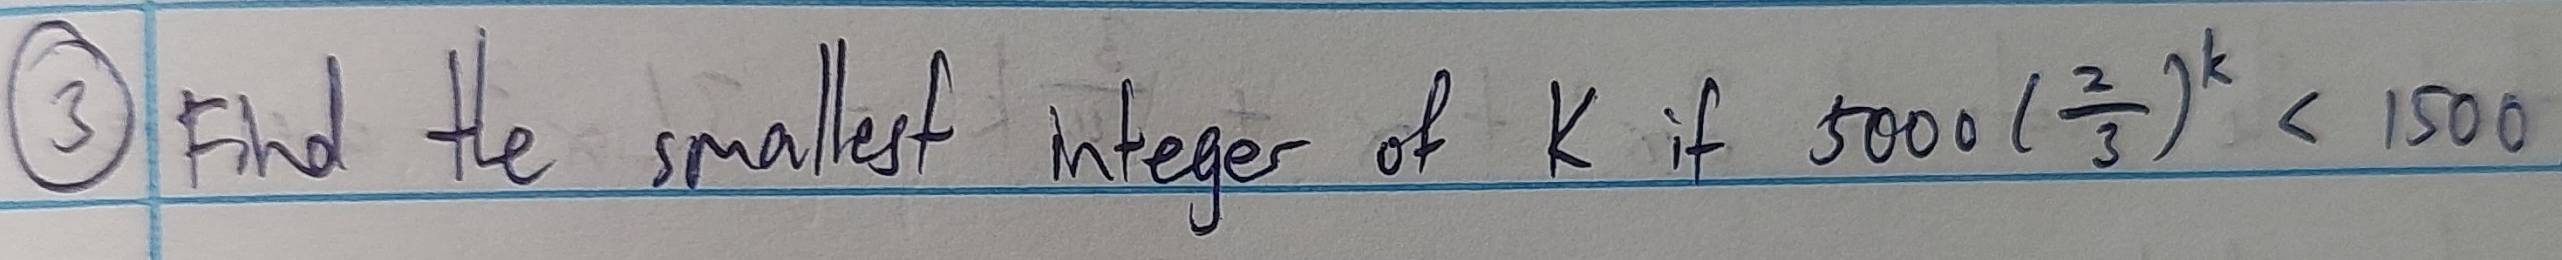 ③ Find the smallest integer of K if 5000 (2/3)^k < 1500